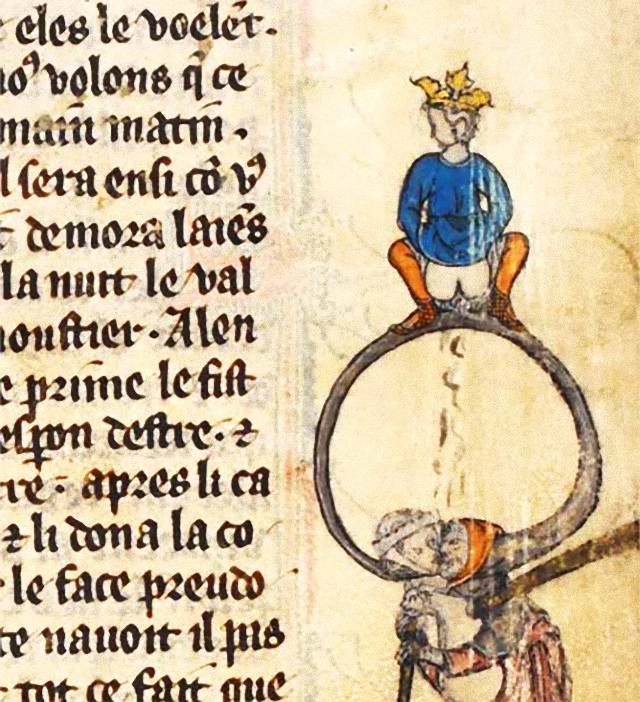 eles le voele̅t.
noꝰ volons q̅ ce
main matin.
l sera ensi co̅ vꝰ
demora laie̅s
la nuit le val
moustier. Alen
e prime le fist
esp̲on destre. ⁊
tre. apres li ca
⁊ li dona la co
le face preudo
te nauoit il pas
tot ce fait que